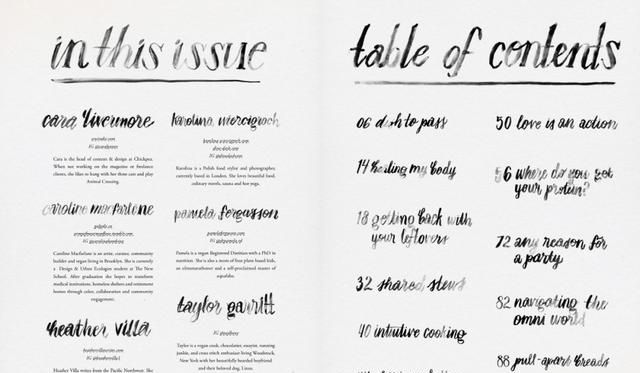 in this issue
cara livermore
Cara is the head of content & design at Chickpea.
When not working on the magazine or freelance
clients, she likes to hang with her three cats and play
Animal Crossing.
caroline macfarlane
Caroline Macfarlane is an artist, curator, community
builder and vegan living in Brooklyn. She is currently
a Design & Urban Ecologies student at The New
School. After graduation she hopes to transform
medical institutions, homeless shelters and retirement
homes through color, collaboration and community
engagement.
heather villa
Heather Villa writes from the Pacific Northwest. She
karolina wiercigroch
Karolina is a Polish food stylist and photographer,
currently based in London. She loves beautiful food,
culinary travels, sauna and hot yoga.
pamela fergusson
Pamela is a vegan Registered Dietitian with a PhD in
nutrition. She is also a mom of four plant based kids,
an ultramarathoner and a self-proclaimed master of
taylor garritt
Taylor is a vegan cook, chocolatier, crossfit
junkie, and crazy stitch enthusiast living Woodstock,
New York with her beautifully bearded boyfriend
and their beloved dog, Linus.
table of contents
06 dish to pass
14 healing my body
18 getting back with
your leftovers
32 shared stews
40 intuitive cooking
50 love is an action
56 where do you get
your protein?
72 any reason for
a party
82 navigating the
omni world
88 pull-apart breads